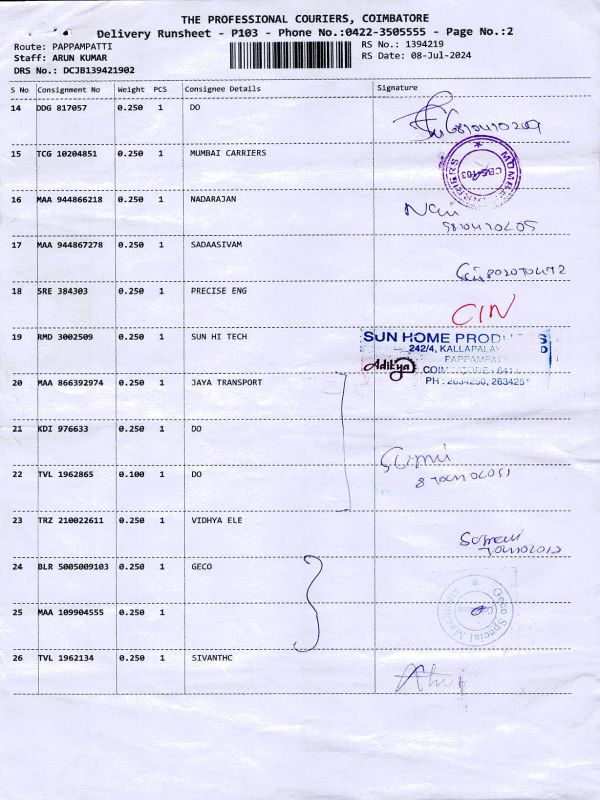 THE PROFESSIONAL COURIERS, COIMBATORE
Delivery Runsheet - P103 - Phone No.:0422-3505555 - Page No.:2
Route: PAPPAMPATTI
RS No.: 1394219
Staff: ARUN KUMAR
RS Date: 08-Jul-2024
DRS No.: DCJB139421902
S No Consignment No Weight PCS Consignee Details Signature
14 DDG 817057 0.250 1 DO
15 TCG 10204851 0.250 1 MUMBAI CARRIERS
16 MAA 944866218 0.250 1 NADARAJAN
17 MAA 944867278 0.250 1 SADAASIVAM
18 SRE 384303 0.250 1 PRECISE ENG
CIN
19 RMD 3002509 0.250 1 SUN HI TECH
SUN HOME
242/4,
Aditya
20 MAA 866392974 0.250 1 JAYA TRANSPORT
21 KDI 976633 0.250 1 DO
22 TVL 1962865 0.100 1 DO
23 TRZ 210022611 0.250 1 VIDHYA ELE
24 BLR 5005009103 0.250 1 GECO
Geco Special
25 MAA 109904555 0.250 1
26 TVL 1962134 0.250 1 SIVANTHC